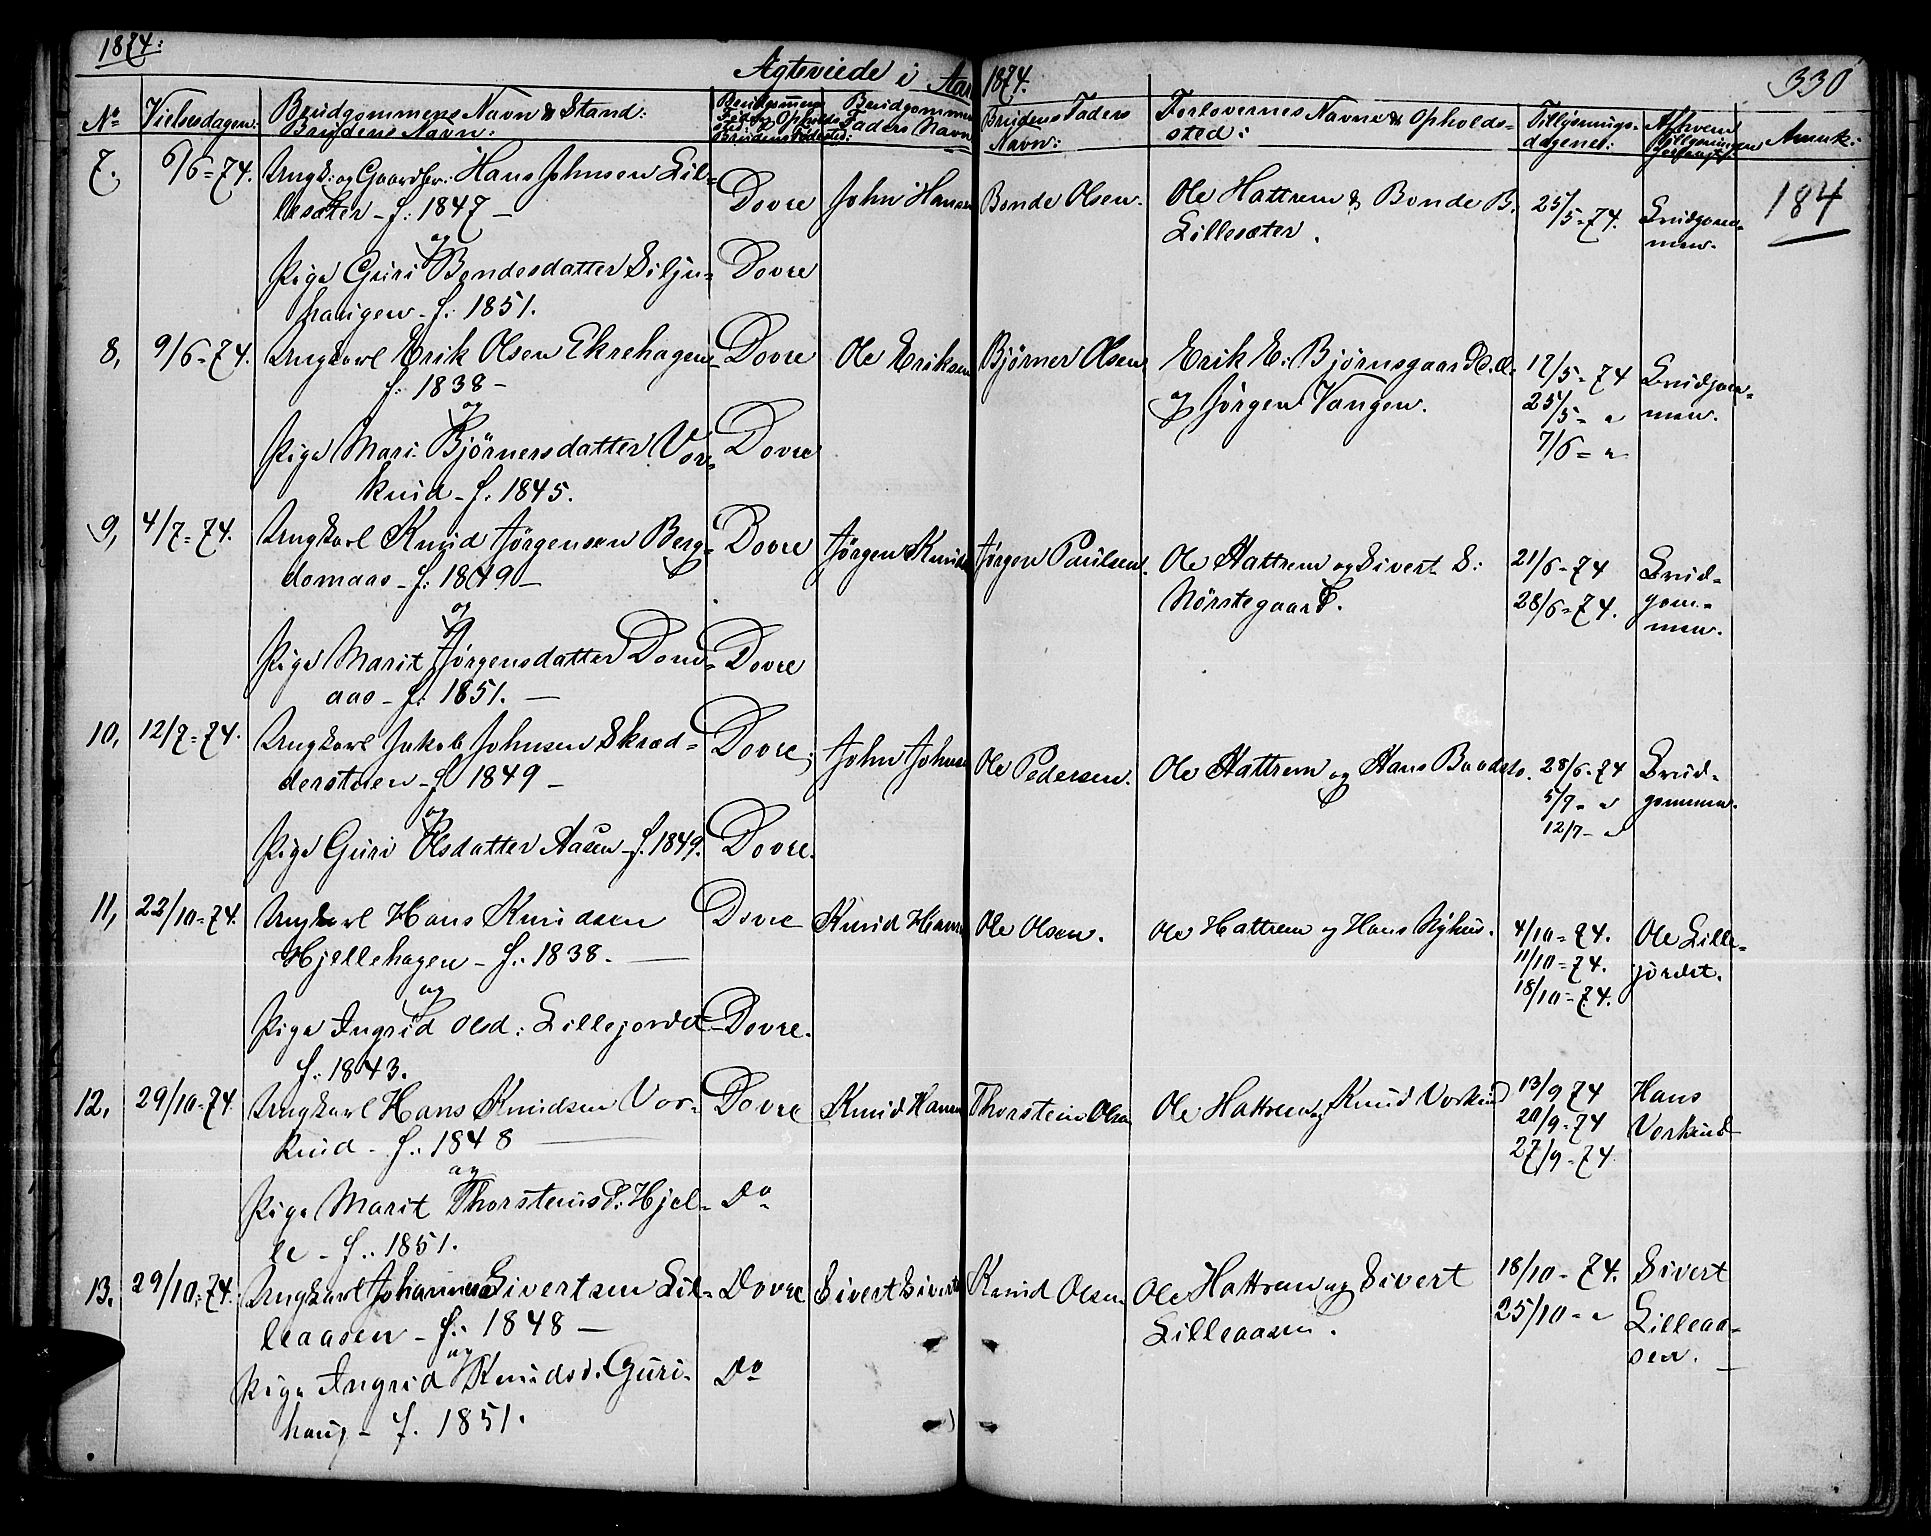 1874.
Agteviede i Aar 1874.
330
No
Vielsesdagen:
Brudgommens Navn & Stand:
Brudens Navn:
Brudgommens Fader's Navn
Brudens Faders Navn:
Forlovernes Navne & Opholds-
sted:
Tillysnings-
dagene:
Anmk:
184
7. 6/6=74. Ungk: og Gaardbr: Hans Johnsen Lil= Dovre John Hansen Bonde Olsen. Ole Hattrem & Bonde B. 25/5-74. Brudgom=
lesæter - f: 1847 - Lillesæter. men.
og
Pige Guri Bondesdatter Silju= Dovre
haugen - f: 1851.
8, 9/6=74. Ungkarl Erik Olsen Ekrehagen Dovre Ole Eriksen Bjørner Olsen Erik E. Bjørnsgaard 17/5=74 Brudgom=
f: 1838 - og Jørgen Vangen. 25/5= " men.
og 7/6= "
Pige Mari Bjørnersdatter Vor= Dovre
kuid - f. 1845.
9, 4/7=74. Ungkarl Knud Jørgensen Berg= Dovre Jørgen Knuds Jørgen Paulsen. Ole Hattrem og Sivert S: 21/6=74 Brud=
domaas - f: 1849 - Nørstegaard. 28/6=74. gom=
og men.
Pige Marit Jørgensdatter Dom= Dovre
aas - f: 1851. -
10, 12/7=74. Ungkarl Jakob Johnsen Skræd= Dovre, John Johnse Ole Pedersen. Ole Hattrem og Hans Baadsto. 28/6-74 Brud=
derstuen - f 1849 - 5/7- " gommen.
og 12/7- "
Pige Guri Olsdatter Aasen - f. 1849. Dovre.
11, 22/10=74. Ungkarl Hans Knudsen Dovre Knud Hanse Ole Olsen. Ole Hattrem og Hans Nyhus. 4/10=74. Ole Lille=
Hjellehagen - f: 1838. 11/10=74. jordet.
og 18/10=74.
Pige Ingrid Olsd: Lillejordet Dovre.
f: 1843.
12. 29/10-74. Ungkarl Hans Knudsen Vor= Dovre Knud Hanse Thorstein Olsen Ole Hattrem og Knud Vorkuid 13/9 74 Hans
kuid - f: 1848 20/9-74 Vorkuid
og 27/9-74.
Pige Marit Thorsteinsd: Hjel= Do
le - f: 1851.
13. 29/10=74. Ungkarl Johannes Sivertsen Lil= Dovre Sivert Siverts Knud Olsen Ole Hattrem og Sivert 18/10-74. Sivert
leaasen - f: 1848 - Lilleaasen. 25/10= " Lilleaa=
og sen.
Pige Ingrid Knudsd. Guri= Do
haug - f. 1851.